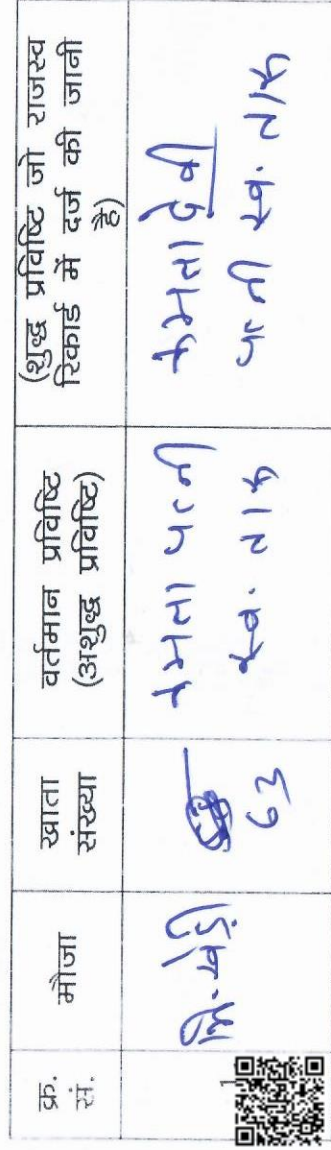 क्र. सं.
मौजा
खाता संख्या
वर्तमान प्रविष्टि
(अशुद्ध प्रविष्टि)
(शुद्ध प्रविष्टि जो राजस्व
रिकार्ड में दर्ज की जानी
है)
1
63
पत्नी
स्व.
देवी
पत्नी स्व.